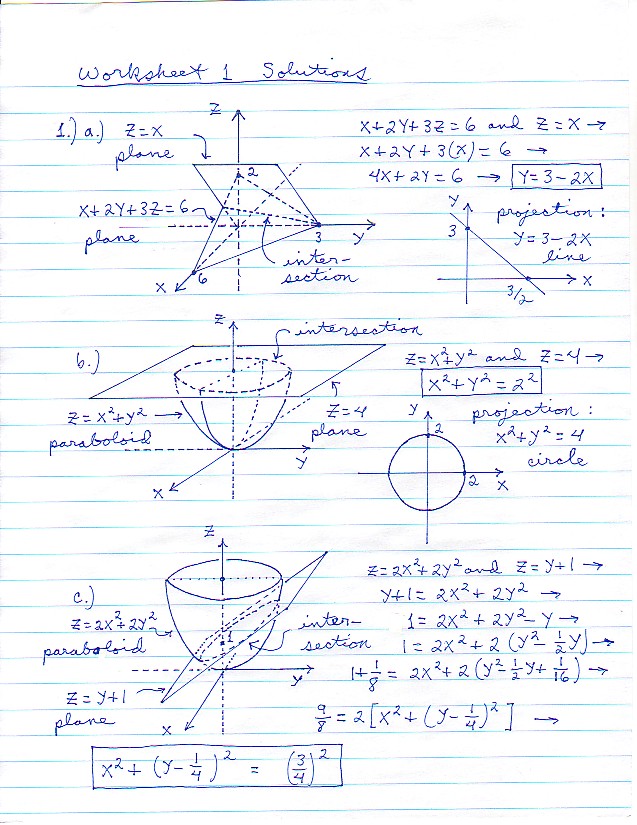 Worksheet 1 Solutions
1.) a.) Z=X
plane
Z
2
X+2Y+3Z=6
plane
3
Y
inter-
section
X
6
X+2Y+3Z=6 and Z=X →
X+2Y+3(X)=6 →
4X+2Y=6 → Y=3-2X
Y
3
3/2
X
projection:
Y=3-2X
line
b.)
Z
intersection
Z=X²+Y²
paraboloid
Z=4
plane
Y
X
Z=X²+Y² and Z=4 →
X²+Y²=2²
Y
2
2
X
projection:
X²+Y²=4
circle
c.)
Z
Z=2X²+2Y²
paraboloid
1
inter-
section
Y
Z=Y+1
plane
X
Z=2X²+2Y² and Z=Y+1 →
Y+1=2X²+2Y² →
1=2X²+2Y²-Y →
1=2X²+2(Y²-½Y) →
1+⅛=2X²+2(Y²-½Y+1/16) →
9/8=2[X²+(Y-¼)²] →
X²+(Y-¼)²=(¾)²